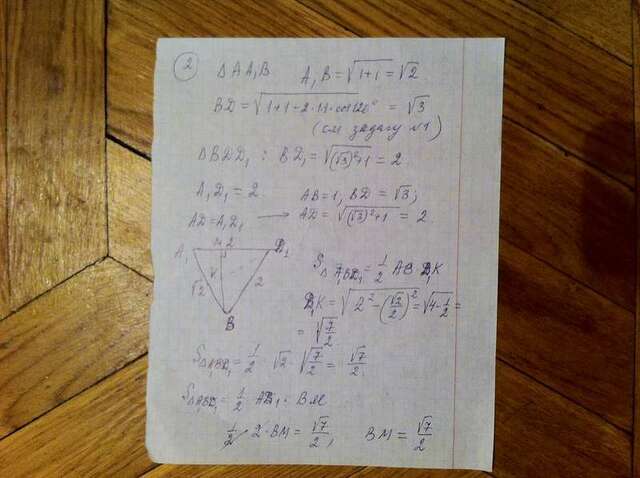 2 ΔAA₁B A₁B = √(1+1) = √2
BD = √(1+1-2·1·1·cos120°) = √3
(см задачу №1)
ΔBDD₁ : BD₁ = √((√3)²+1) = 2
A₁D₁ = 2 AB=1, BD = √3;
AD=A₁D₁ → AD = √((√3)²+1) = 2
A₁ M 2 D₁
√2 2
B
S△A₁BD₁ = 1/2 AB·D₁K
D₁K = √(2²-(√2/2)²) = √(4-1/2) =
= √(7/2)
S△A₁BD₁ = 1/2 · √2 · √(7/2) = √7/2
S△A₁BD₁ = 1/2 AD₁ · BM
1/2 · 2·BM = √7/2, BM = √7/2